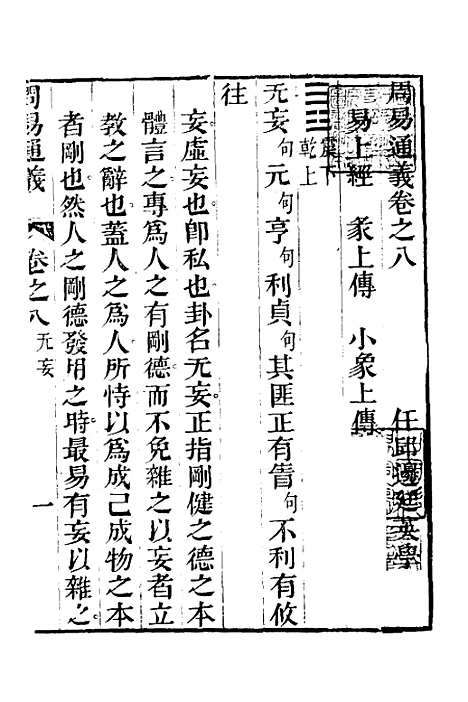 周易通義卷之八
任邱邊廷英學
易上經　彖上傳　小象上傳
震下
乾上
无妄句元句亨句利貞句其匪正有眚句不利有攸
往
妄虛妄也卽私也卦名无妄正指剛健之德之本
體言之專為人之有剛德而不免雜之以妄者立
教之辭也蓋人之為人所恃以為成己成物之本
者剛也然人之剛德發用之時最易有妄以雜之
周易通義　卷之八　无妄　一